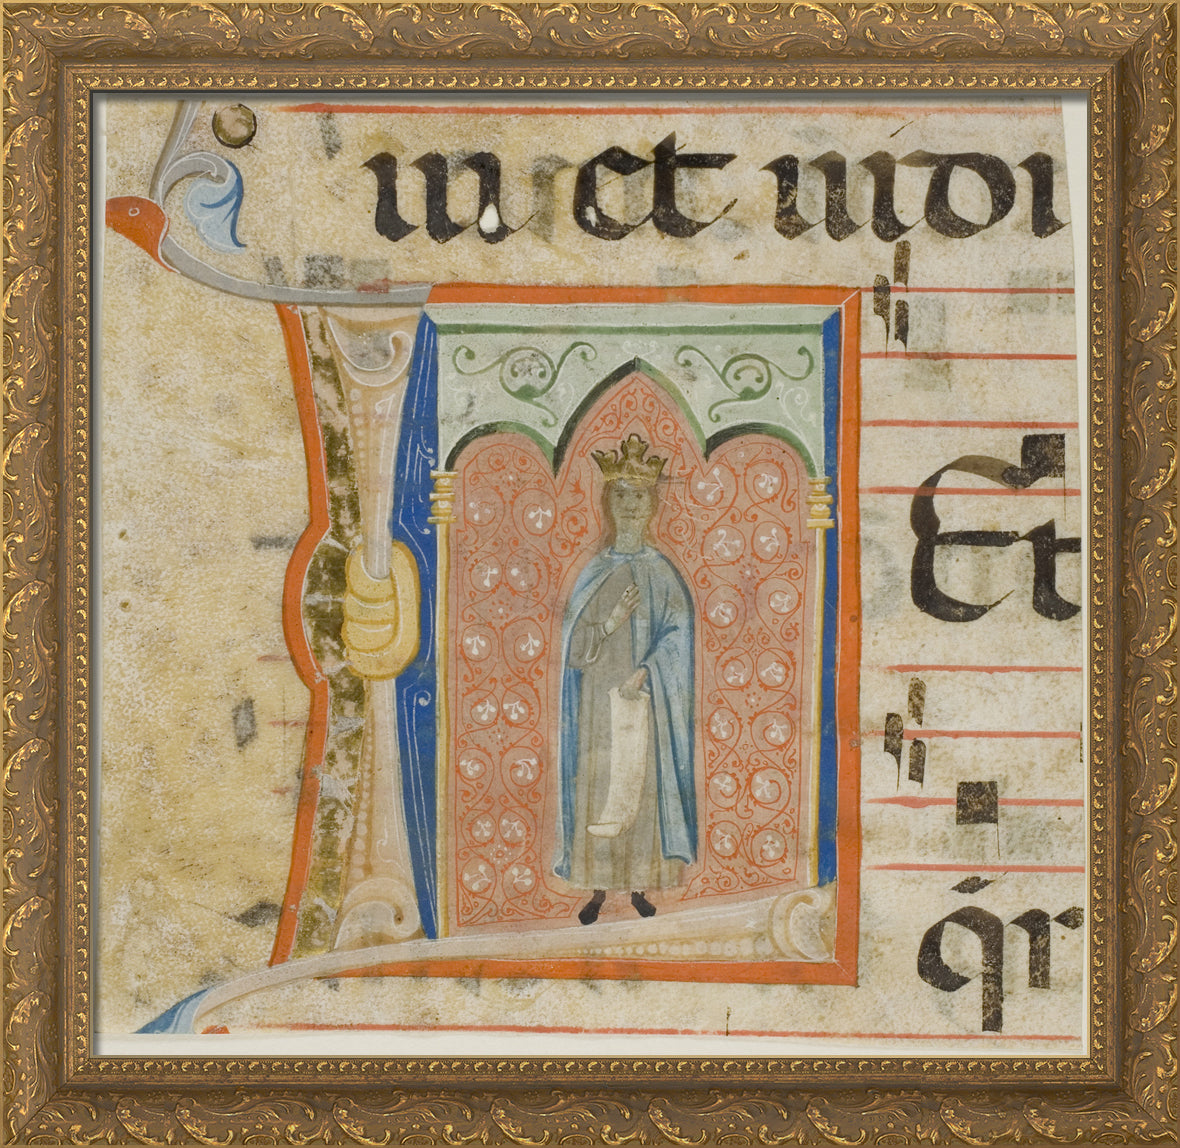 in et uidi
Et
qr